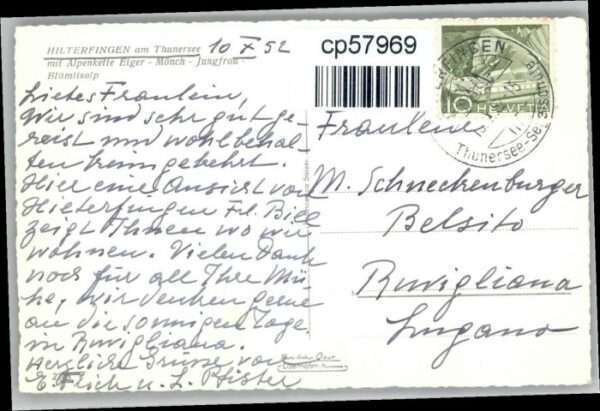 HILTERFINGEN am Thunersee 10 X 52
mit Alpenkette Eiger - Mönch - Jungfrau -
Blümlisalp
Liebes Fräulein,
Wir sind sehr gut ge-
reist und wohlbehal-
ten heimgekehrt.
Hier eine Ansicht von
Hilterfingen Frl.
zeigt Ihnen wo wir
wohnen. Vielen Dank
noch für all Ihre Mü-
he, wir denken gerne
an die sonnigen Tage
in Ruvigliana.
Herzliche Grüsse von
E. u. L. Pfister
cp57969
10 HELVETIA
Thunersee-
Fräulein
M. Schneckenburger
Belsito
Ruvigliana
Lugano